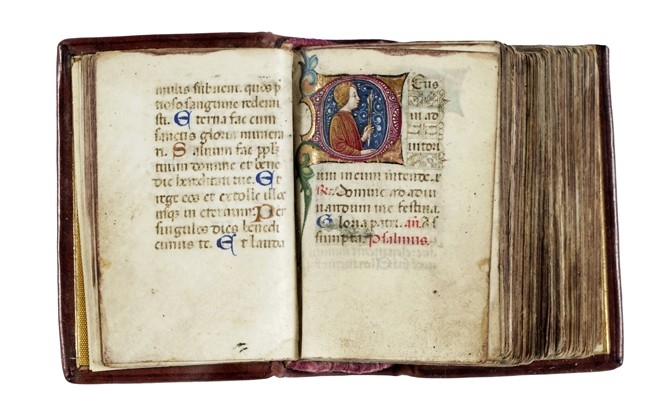 mulis subueni. quos p̄
tioso sanguine redem
sti. Eterna fac cum
sanctis gloria munera
ri. Saluum fac pp̄lꝫ
tuum domine et bene
dic hereditati tue. Et
rege eos et extolle illos
usq; in eternum. Per
singulos dies benedi
cimus te. Et lauda
Deus
in ad
iutori
um meum intende. r
Rx. Domine ad adiu
uandum me festina.
Gloria patri. an̄. Aſ
sumpta. Psalmus.